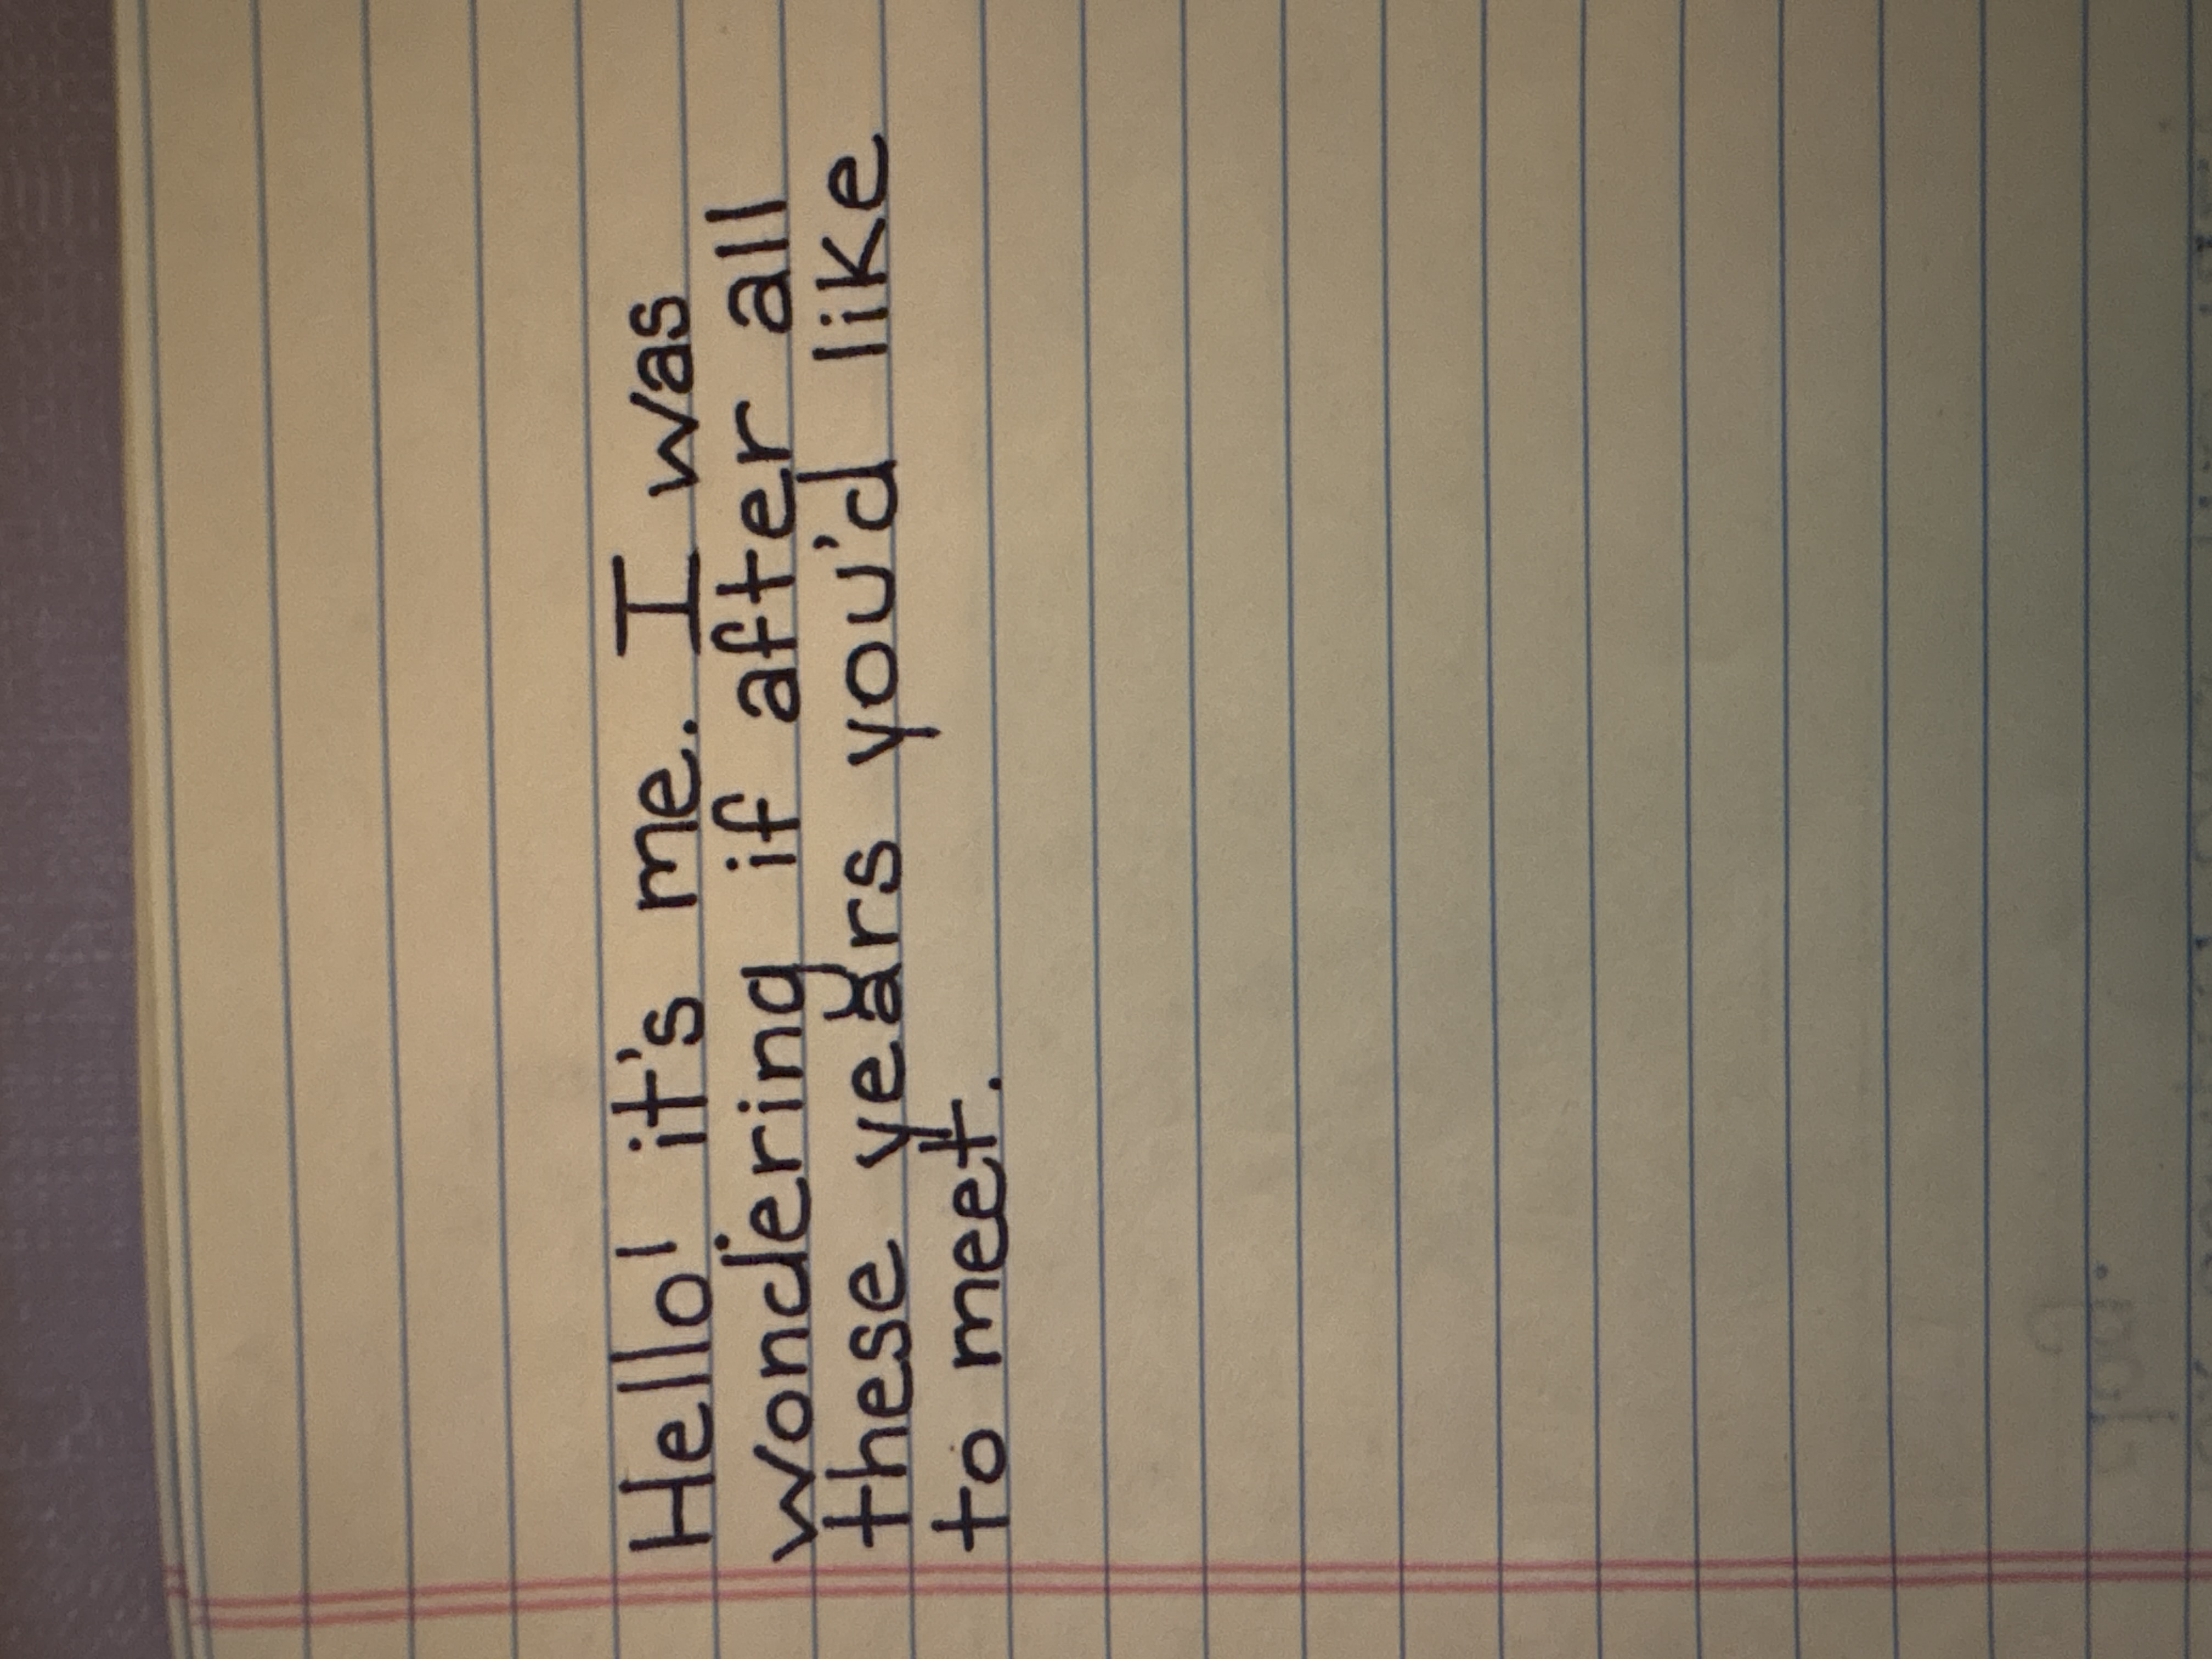 Hello! it's me. I was
wondering if after all
these years you'd like
to meet.